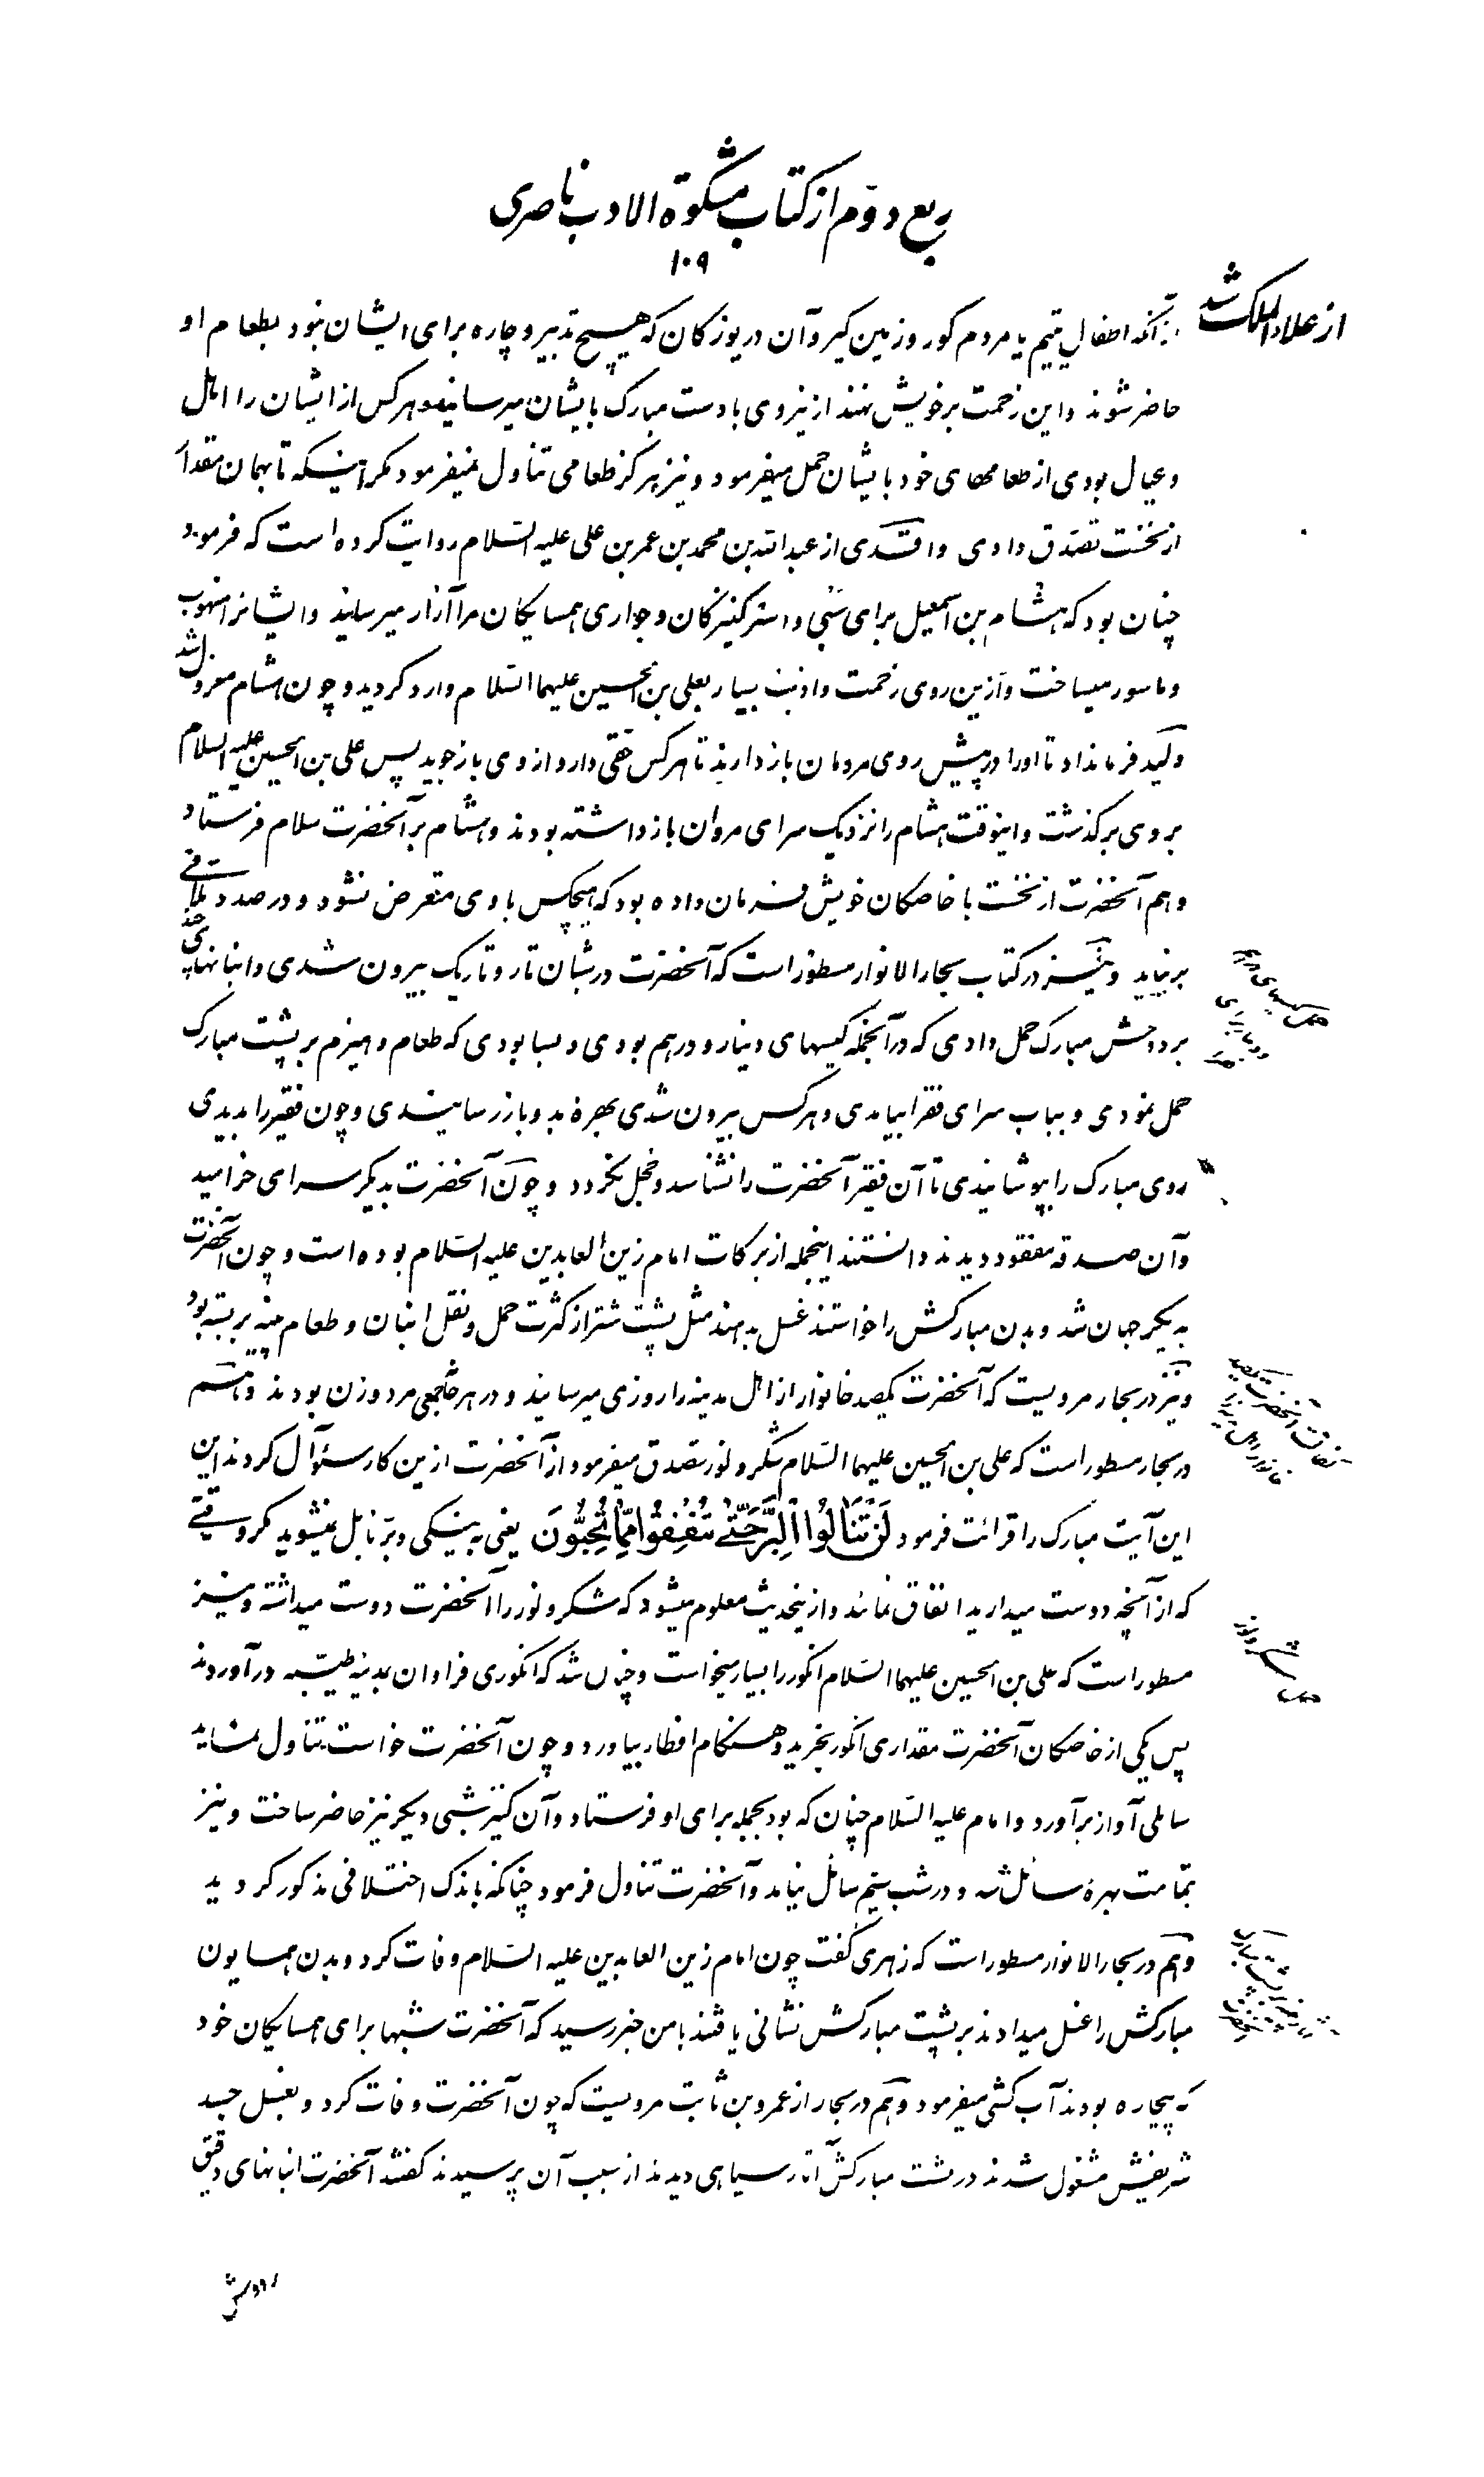 ربع دوم از کتاب مشکوة الادب ناصری
۱۰۹
آنکه اطفال یتیم یا مردم کور و زمین گیر و آن دریوزگان که هیچ تدبیر و چاره برای ایشان نبود بطعام او
حاضر شوند و این زحمت بر خویش نهند از نیروی با دست مبارک بایشان میرسانید و هرکس از ایشان را اهل
و عیال بودی از طعامهای خود بایشان حمل میفرمود و نیز هرگز طعامی تناول نمیفرمود مگر اینکه تا بهمان مقدار
از نخست تصدق دادی واقدی از عبدالله بن محمد بن عمر بن علی علیه السلام روایت کرده است که فرمود
چنان بود که هشام بن اسمعیل برای کنیزکان و جواری همسایگان مرا آزار میرسانید و ایشانرا منهوب
و ماسور میساخت و ازین روی زحمت و اذیت بسیار بعلی بن الحسین علیهما السلام وارد گردید و چون هشام معزول شد
ولید فرمانداد تا او را در پیش روی مردمان باز دارند تا هرکس حقی دارد از وی باز جوید پس علی بن الحسین علیه السلام
بر وی برگذشت و اینوقت هشام را نزدیک سرای مروان باز داشته بودند و هشام بر آنحضرت سلام فرستاد
و هم آنحضرت از نخست با خاصگان خویش فرمان داده بود که هیچکس با وی متعرض نشود و در صدد تلافی
برنیاید و نیز در کتاب بحار الانوار مسطور است که آنحضرت در شبان تار و تاریک بیرون شدی و انبانهای چند
بر دوش مبارک حمل دادی که در آنجمله کیسهای دینار و درهم بودی و بسا بودی که طعام و هیزم بر پشت مبارک
حمل نمودی و بباب سرای فقرا بیامدی و هرکس بیرون شدی بهرهٔ بدو باز رسانیدی و چون فقیر را بدیدی
روی مبارک را بپوشانیدی تا آن فقیر آنحضرت را نشناسد و خجل نگردد و چون آنحضرت بدیگر سرای خرامید
و آن صدقه مفقود دیدند دانستند اینجمله از برکات امام زین العابدین علیه السلام بوده است و چون آنحضرت
بدیگر جهان شد و بدن مبارکش را خواستند غسل بدهند مثل پشت شتر از کثرت حمل و نقل انبان و طعام پینه بر بسته بود
و نیز در بحار مرویست که آنحضرت یکصد خانوار از اهل مدینه را روزی میرسانید و در هر جمعی مرد و زن بودند و هم
در بحار مسطور است که علی بن الحسین علیهما السلام شکر و لوز تصدق میفرمود از آنحضرت ازین کار سئوال کردند این
این آیت مبارک را قرائت فرمود لَنْ تَنَالُوا الْبِرَّ حَتّٰی تُنْفِقُوا مِمَّا تُحِبُّونَ یعنی به نیکی و بر نایل نمیشوید مگر وقتی
که از آنچه دوست میدارید انفاق نمائید و از اینحدیث معلوم میشود که شکر و لوز را آنحضرت دوست میداشته و نیز
مسطور است که علی بن الحسین علیهما السلام انگور را بسیار میخواست و چنان شد که انگوری فراوان بمدینه طیبه در آوردند
پس یکی از خاصگان آنحضرت مقداری انگور بخرید و هنگام افطار بیاورد و چون آنحضرت خواست تناول نماید
سائلی آواز برآورد و امام علیه السلام چنان که بود بجمله برای او فرستاد و آن کنیز شبی دیگر نیز حاضر ساخت و نیز
تمامت بهرهٔ سائل شد و در شب سیم سائل نیامد و آنحضرت تناول فرمود چنانکه باندک اختلافی مذکور گردید
و هم در بحار الانوار مسطور است که زهری گفت چون امام زین العابدین علیه السلام وفات کرد و بدن همایون
مبارکش را غسل میدادند بر پشت مبارکش نشانی یافتند بامن خبر رسید که آنحضرت شبها برای همسایگان خود
که بیچاره بودند آب کشی میفرمود و هم در بحار از عمرو بن ثابت مرویست که چون آنحضرت وفات کرد و بغسل جسد
شریفش مشغول شدند در پشت مبارکش آثار سیاهی دیدند از سبب آن پرسیدند گفتند آنحضرت انبانهای دقیق